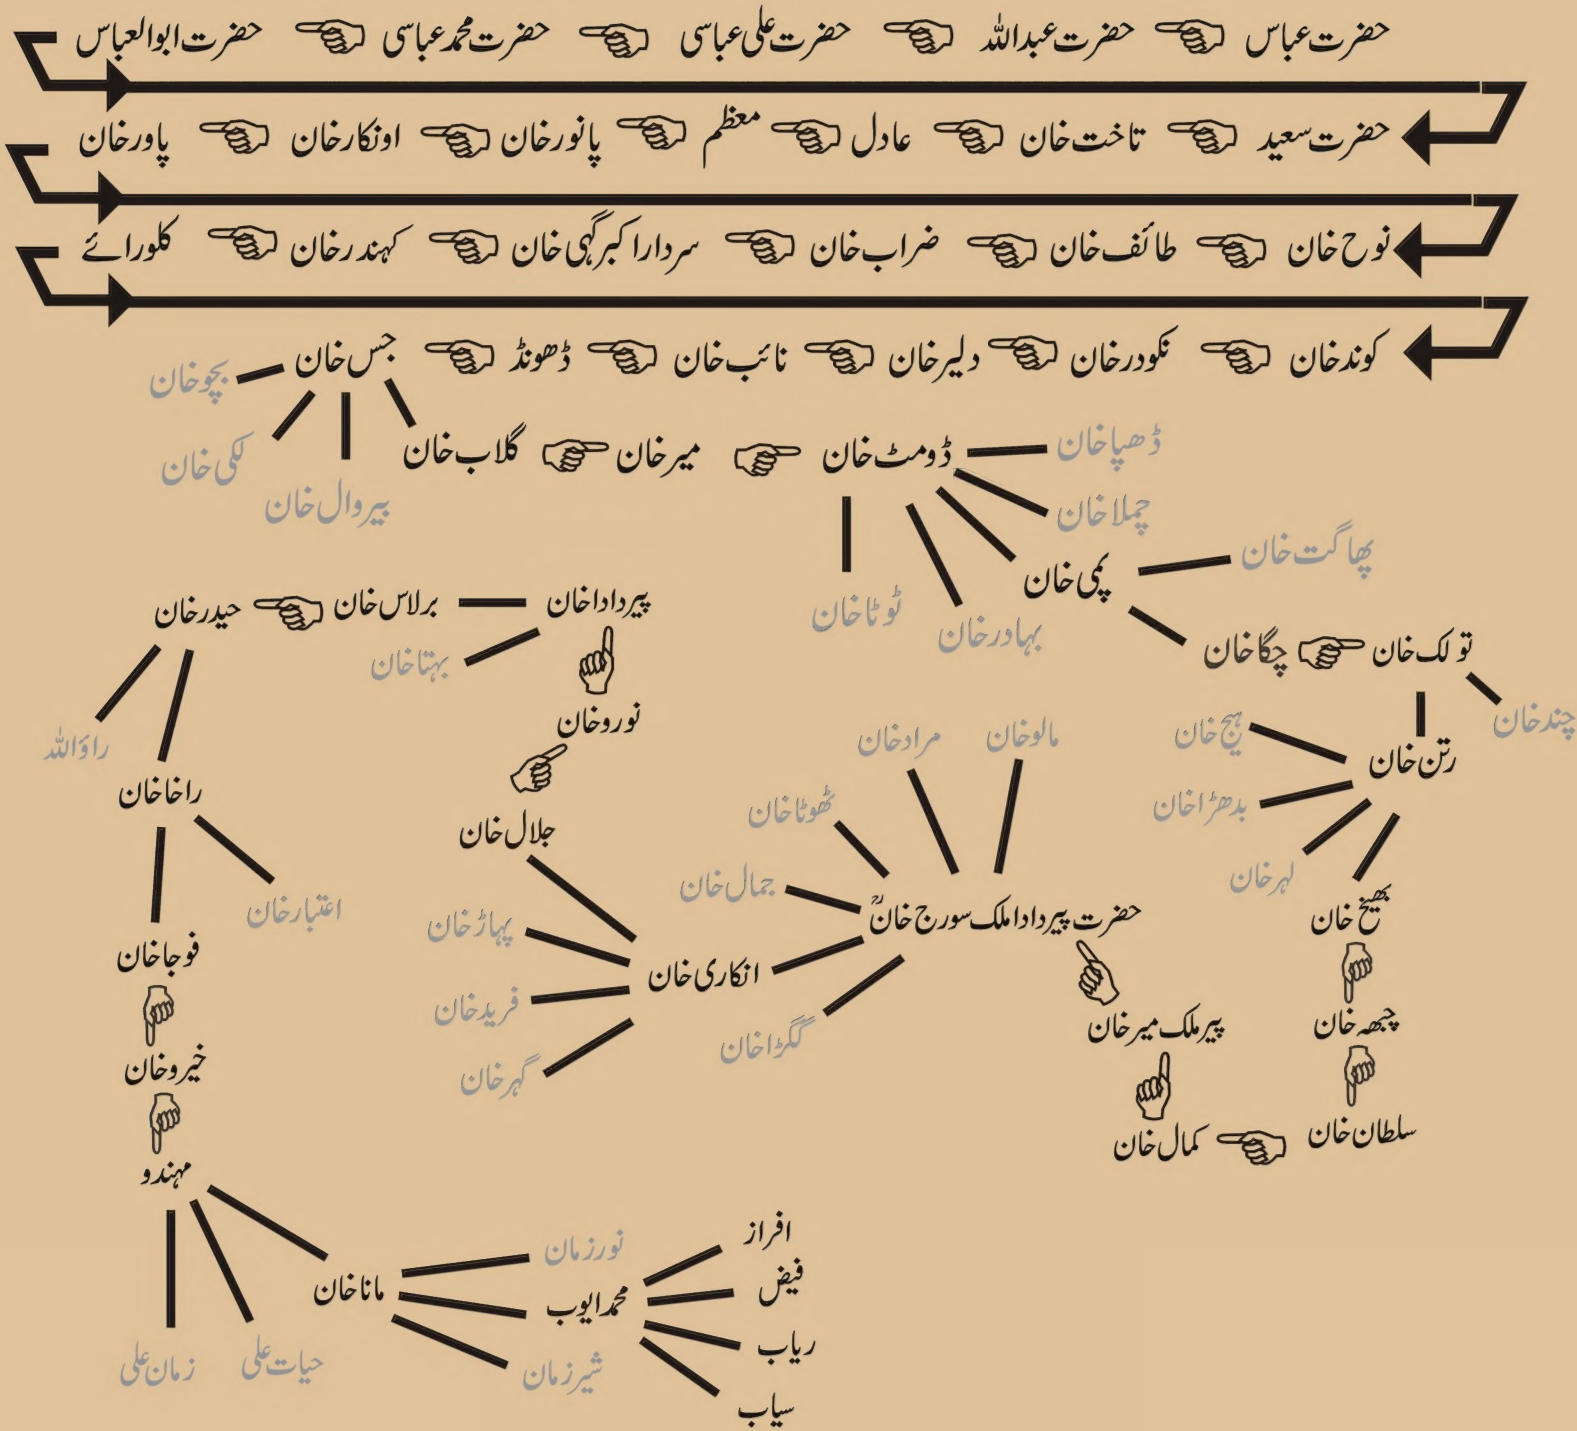 حضرت عباس حضرت عبداللہ حضرت علی عباسی حضرت محمد عباسی حضرت ابوالعباس
حضرت سعید تاخت خان عادل معظم پانور خان اونکار خان پاور خان
نوح خان طائف خان ضراب خان سردار اکبر گہی خان کہندر خان کلورائے
کوند خان نکودر خان دلیر خان نائب خان ڈھونڈ جس خان
بچو خان
لکی خان
بیروال خان
گلاب خان میر خان ڈومٹ خان
ڈھپا خان
چملا خان
پمی خان
بہادر خان
ٹوٹا خان
پھاگت خان
چگا خان تولک خان
چند خان
رتن خان
ہیج خان
بدھڑا خان
لہر خان
بھیخ خان
چبھہ خان
سلطان خان
کمال خان
پیر ملک میر خان
حضرت پیر دادا ملک سورج خانؒ
مالو خان
مراد خان
ٹھوٹا خان
جمال خان
انکاری خان
گگڑا خان
پہاڑ خان
فرید خان
گہر خان
جلال خان
نورو خان
پیر دادا خان
بہتا خان
برلاس خان
حیدر خان
راؤ اللہ
راخا خان
اعتبار خان
فوجا خان
خیرو خان
مہندو
زمان علی
حیات علی
مانا خان
نور زمان
محمد ایوب
شیر زمان
افراز
فیض
ریاب
سیاب